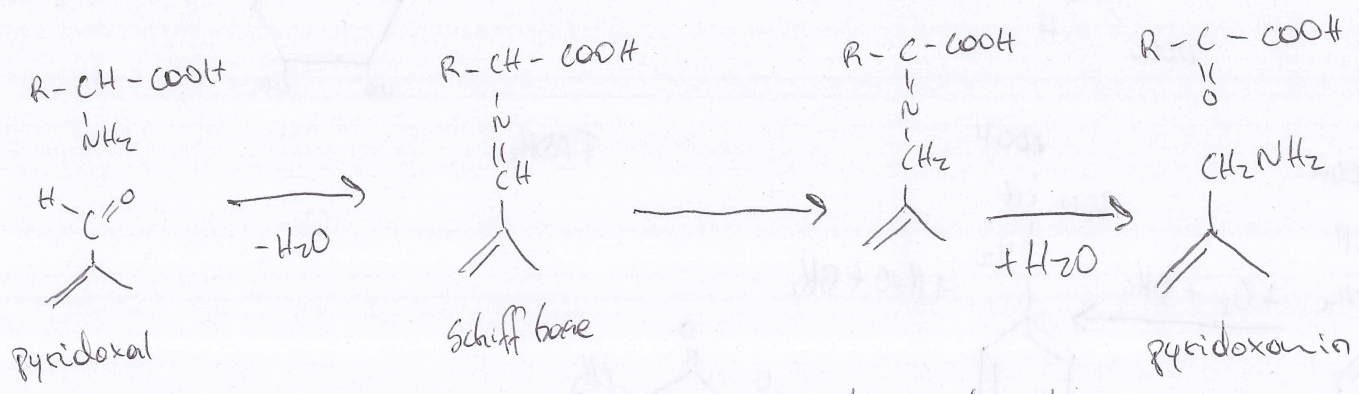 R-CH-COOH
NH2
H
C
O
pyridoxal
-H2O
R-CH-COOH
N
CH
Schiff base
R-C-COOH
N
CH2
+H2O
R-C-COOH
O
CH2NH2
pyridoxamin